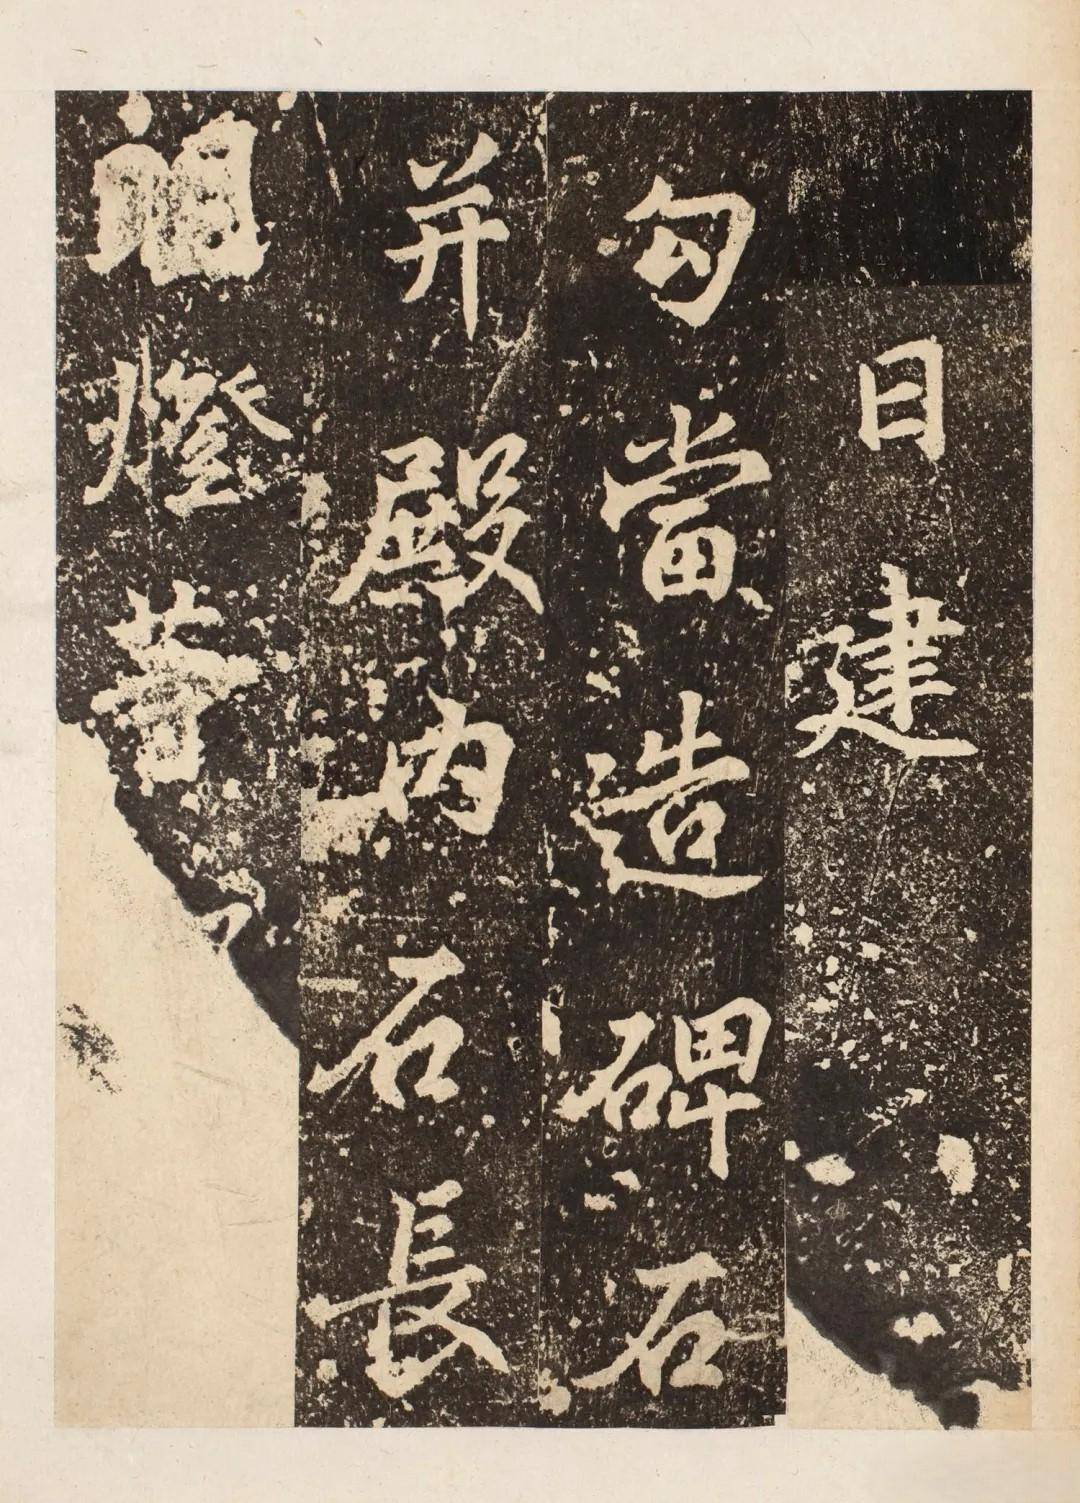 日建
勾當造碑石
并殿内石長
明燈等